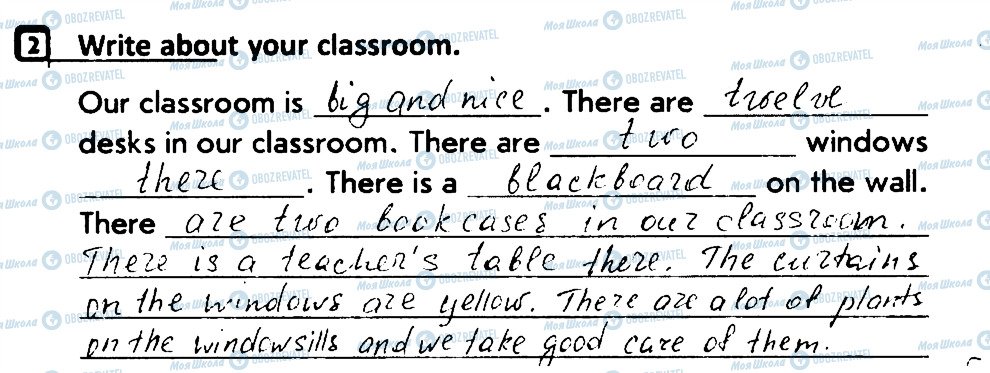 2 Write about your classroom.
Our classroom is big and nice. There are twelve
desks in our classroom. There are two windows
there. There is a blackboard on the wall.
There are two bookcases in our classroom.
There is a teacher's table there. The curtains
on the windows are yellow. There are a lot of plants
on the windowsills and we take good care of them.